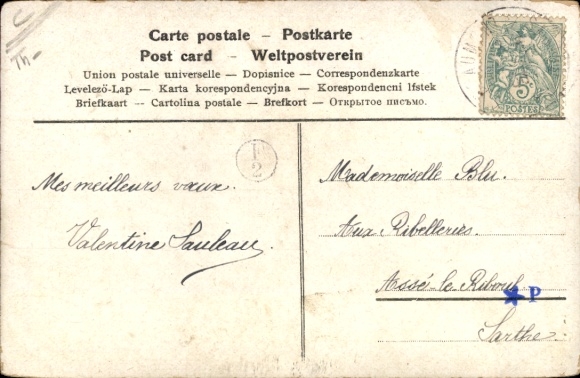 Carte postale — Postkarte
Post card — Weltpostverein
Union postale universelle — Dopisnice — Correspondenzkarte
Levelező-Lap — Karta korespondencyjna — Korespondencni lfstek
Briefkaart — Cartolina postale — Brefkort — Открытое письмо.
Th—
5
POSTES
F
2
Mes meilleurs vœux.
Valentine Sauleau.
Mademoiselle Blu.
Aux Ribelleries.
Assé-le-Riboul
P
Sarthe.